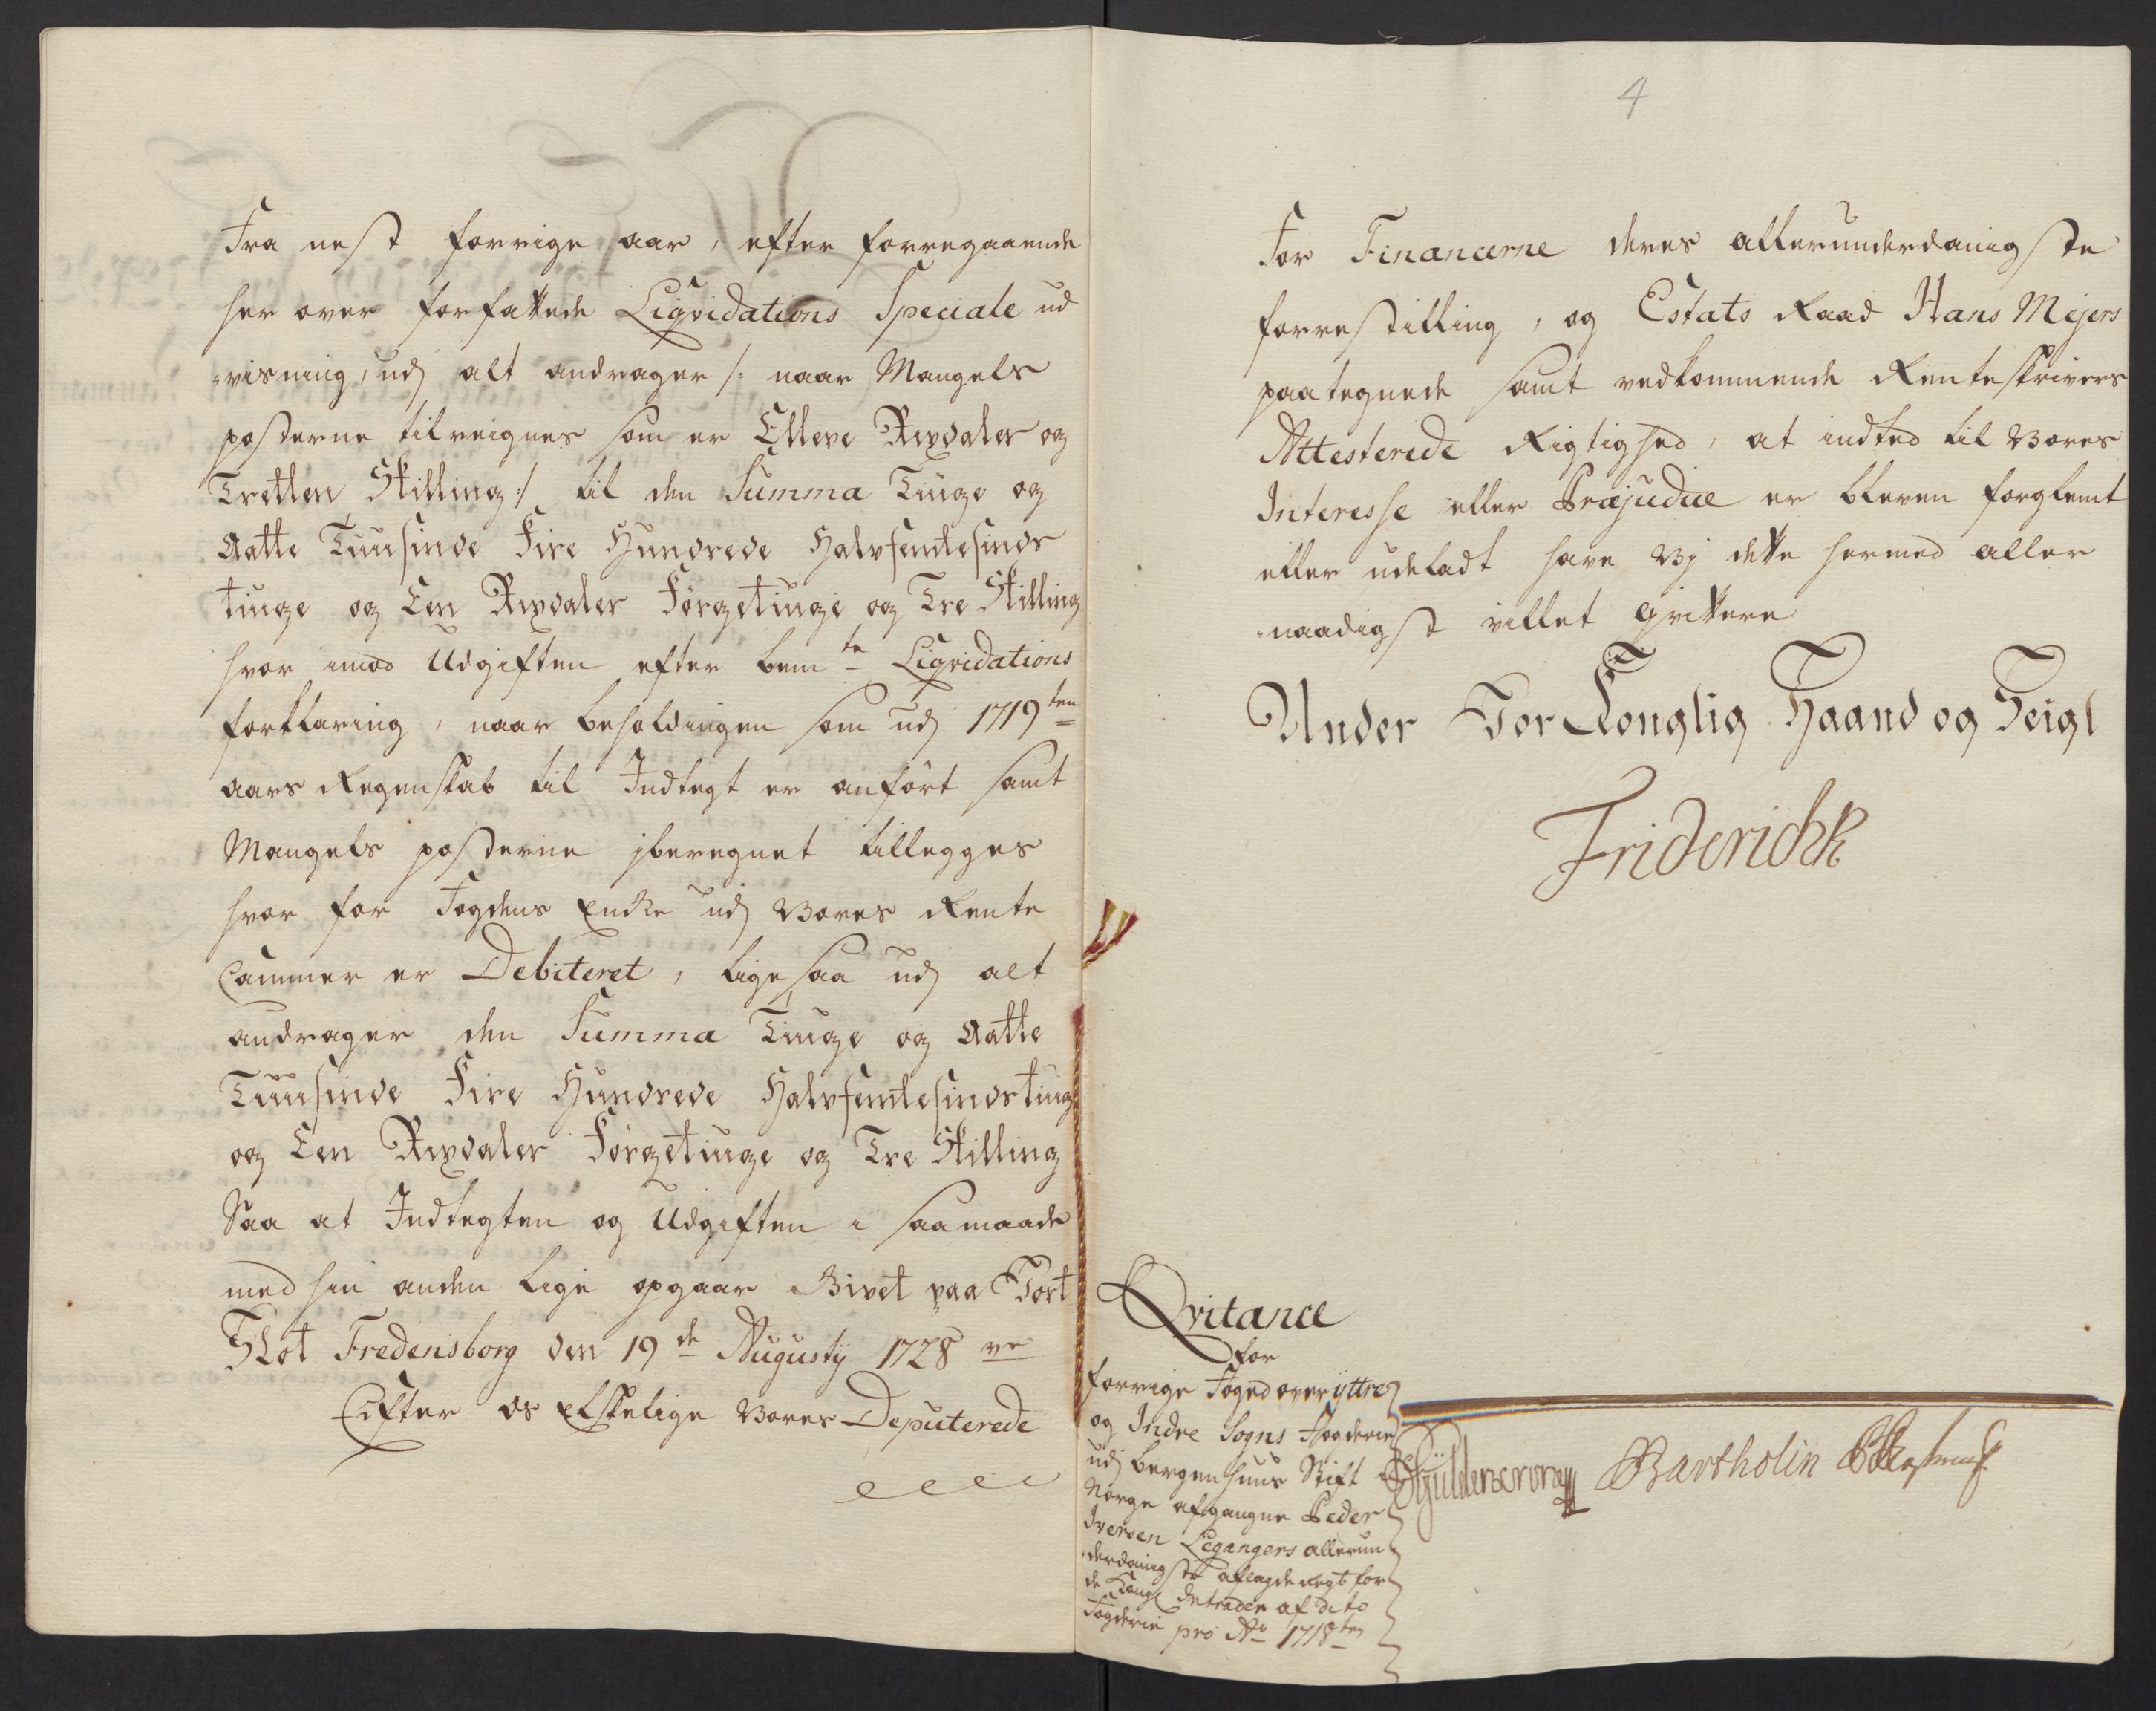 Fra nest forrige aar, efter forregaaende
her over forfattede Liqvidations Speciale ud
visning, udj alt andrager /: naar Mangels
posterne tilreignes som er Elleve Rixdaler og
Tretten Skilling :/ til den Summa Tiuge og
Aatte Tuusinde Fire Hundrede Halvfemtesinds
tiuge og Een Rixdaler Förgetiuge og Tre Skilling
hvor imod Udgiften efter bemte Liqvidations
forklaring, naar beholdingen som udj 1719ten
aars Regenskab til Indtegt er anfört samt
Mangels posterne jberegnet tillegges
hvor for Fogdens Encke udj Vores Rente
Cammer er Debiteret, ligesaa udj alt
andrager den Summa Tiuge og Aatte
Tuusinde Fire Hundrede Halvfemtesindstiuge
og Een Rixdaler Förgetiuge og Tre Skilling
Saa at Indtegten og Udgiften i saamaade
med hin anden lige opgaar Givet paa Vort
Slot Fredensborg den 19de Augustij 1728ve
Efter os Elskelige Vores Deputerede
4
For Financerne deres allerunderdanigste
forrestilling, og Estats Raad Hans Mejers
paategnede samt vedkommende Renteskrivers
Attesterede Rigtighed, at indted til Vores
Interesse eller Præjudice er bleven forglemt
eller udeladt have Vj dette hermed aller
naadigst villet qvittere
Under Vor Konglig Haand og Seigl
Friderich R
Qvitance
for
forrige Foged over yttre
og Indre Sogns Fogderie
udj Bergenhuus Stift i
Norge afgangne Peder
Iversen Legangers allerun
derdanigste aflagde Regt for
de Kongl Intrader af dito
Fogderie pro Ao 1718ten
Gÿldencrone Bartholin